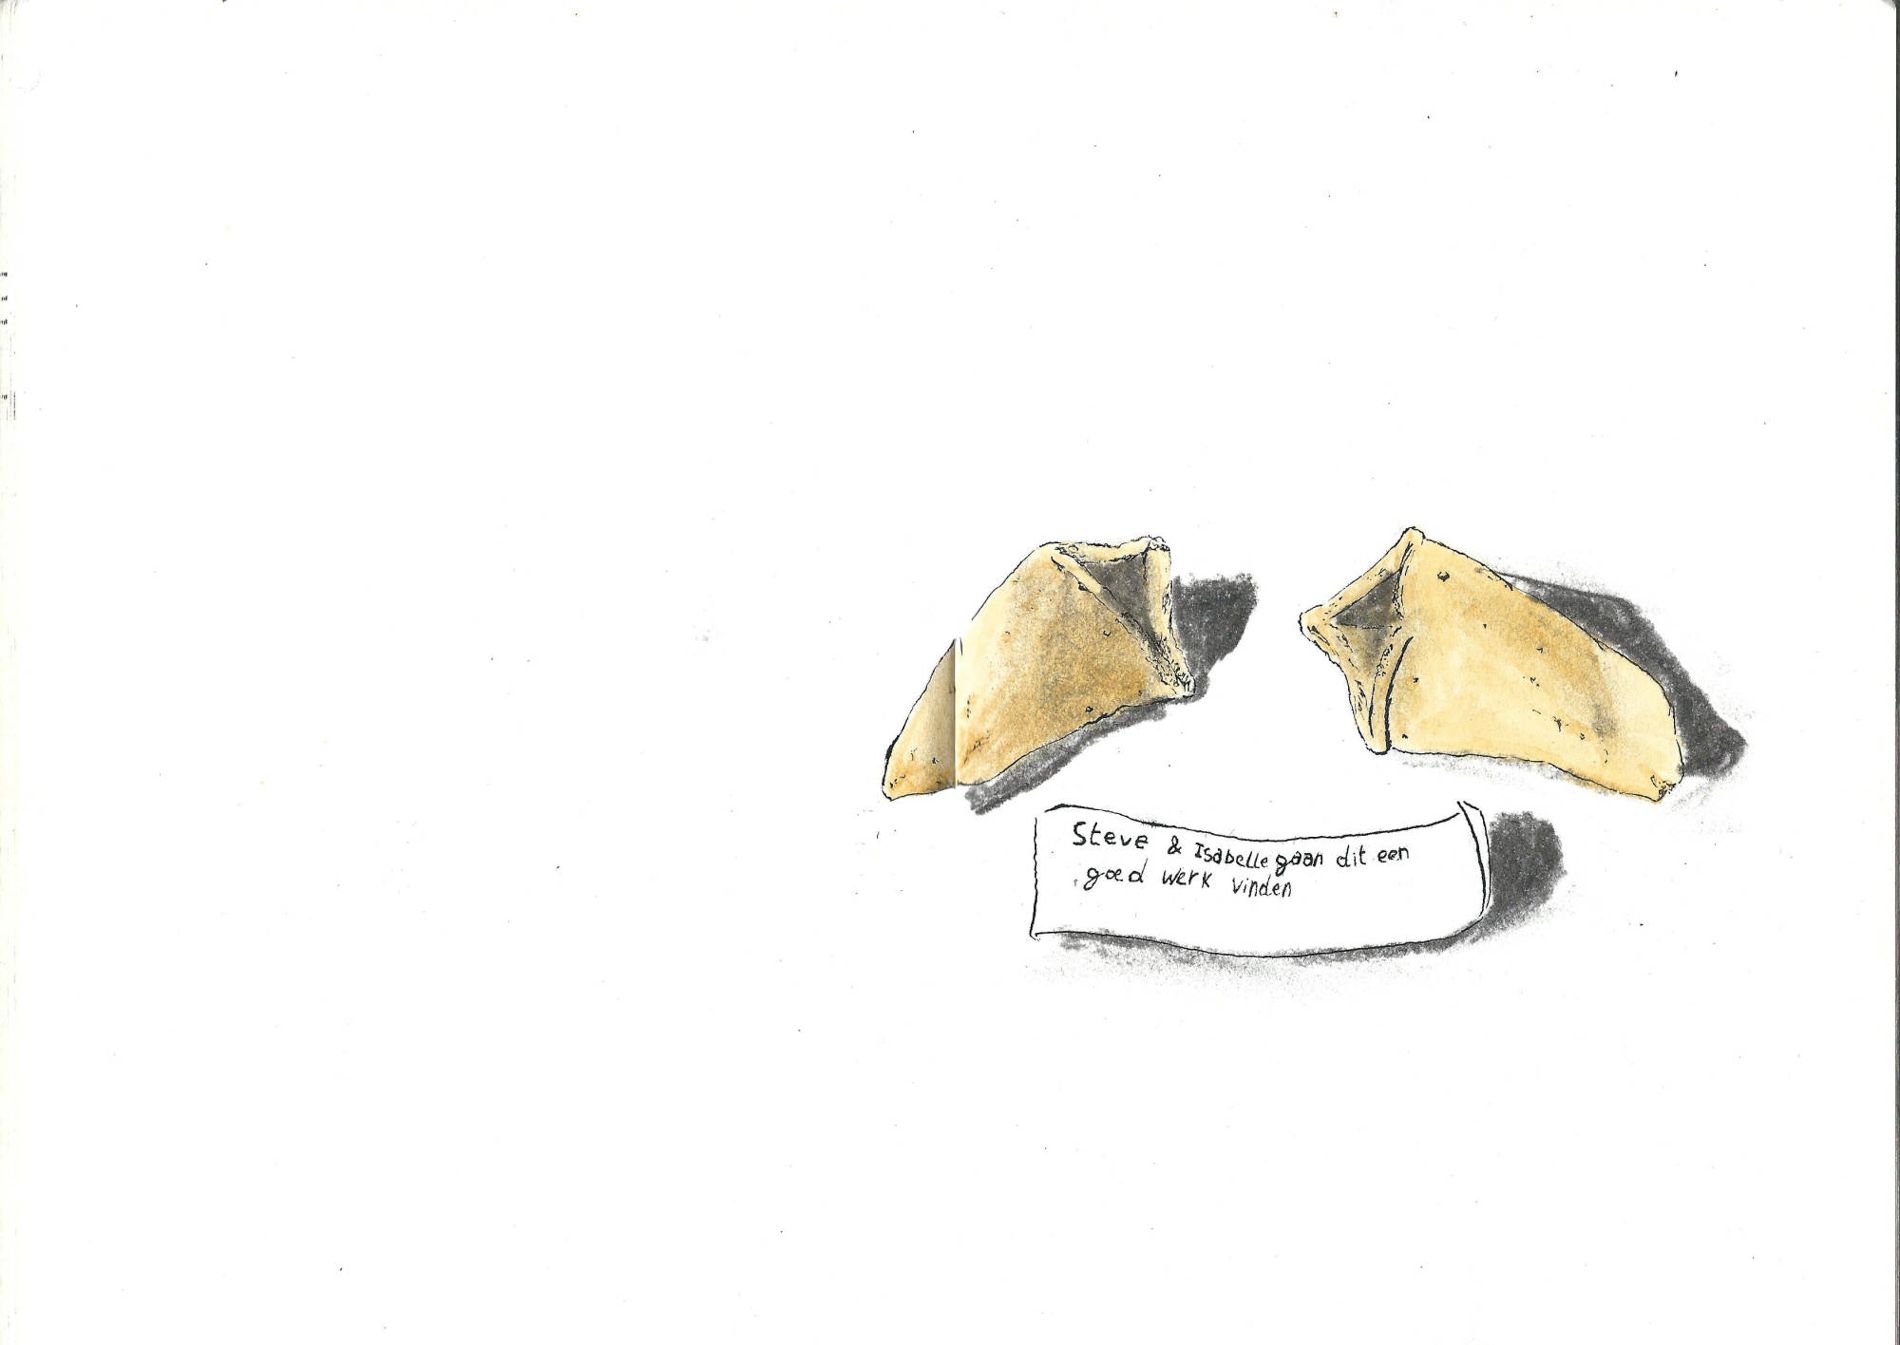 Steve & Isabelle gaan dit een
goed werk vinden